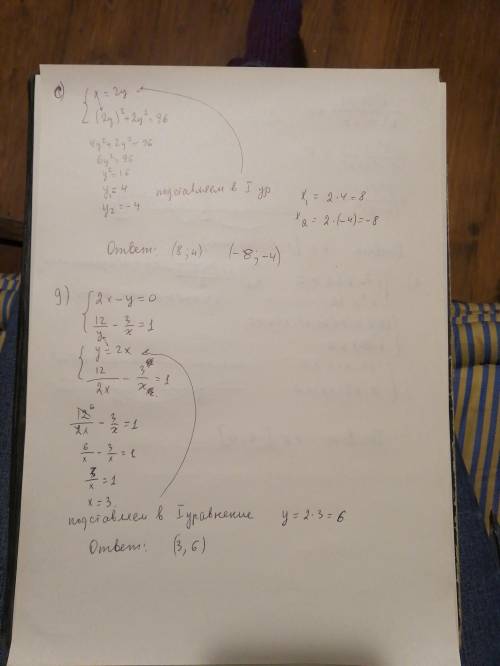 c) { x = 2y
(2y)² + 2y² = 96
4y² + 2y² = 96
6y² = 96
y² = 16
y₁ = 4
y₂ = -4
подставляем в I ур
x₁ = 2·4 = 8
x₂ = 2·(-4) = -8
Ответ: (8; 4) (-8; -4)
g) { 2x - y = 0
12/y - 3/x = 1
{ y = 2x
12/2x - 3/x = 1
12⁶/2x - 3/x = 1
6/x - 3/x = 1
3/x = 1
x = 3
подставляем в I уравнение y = 2·3 = 6
Ответ: (3, 6)